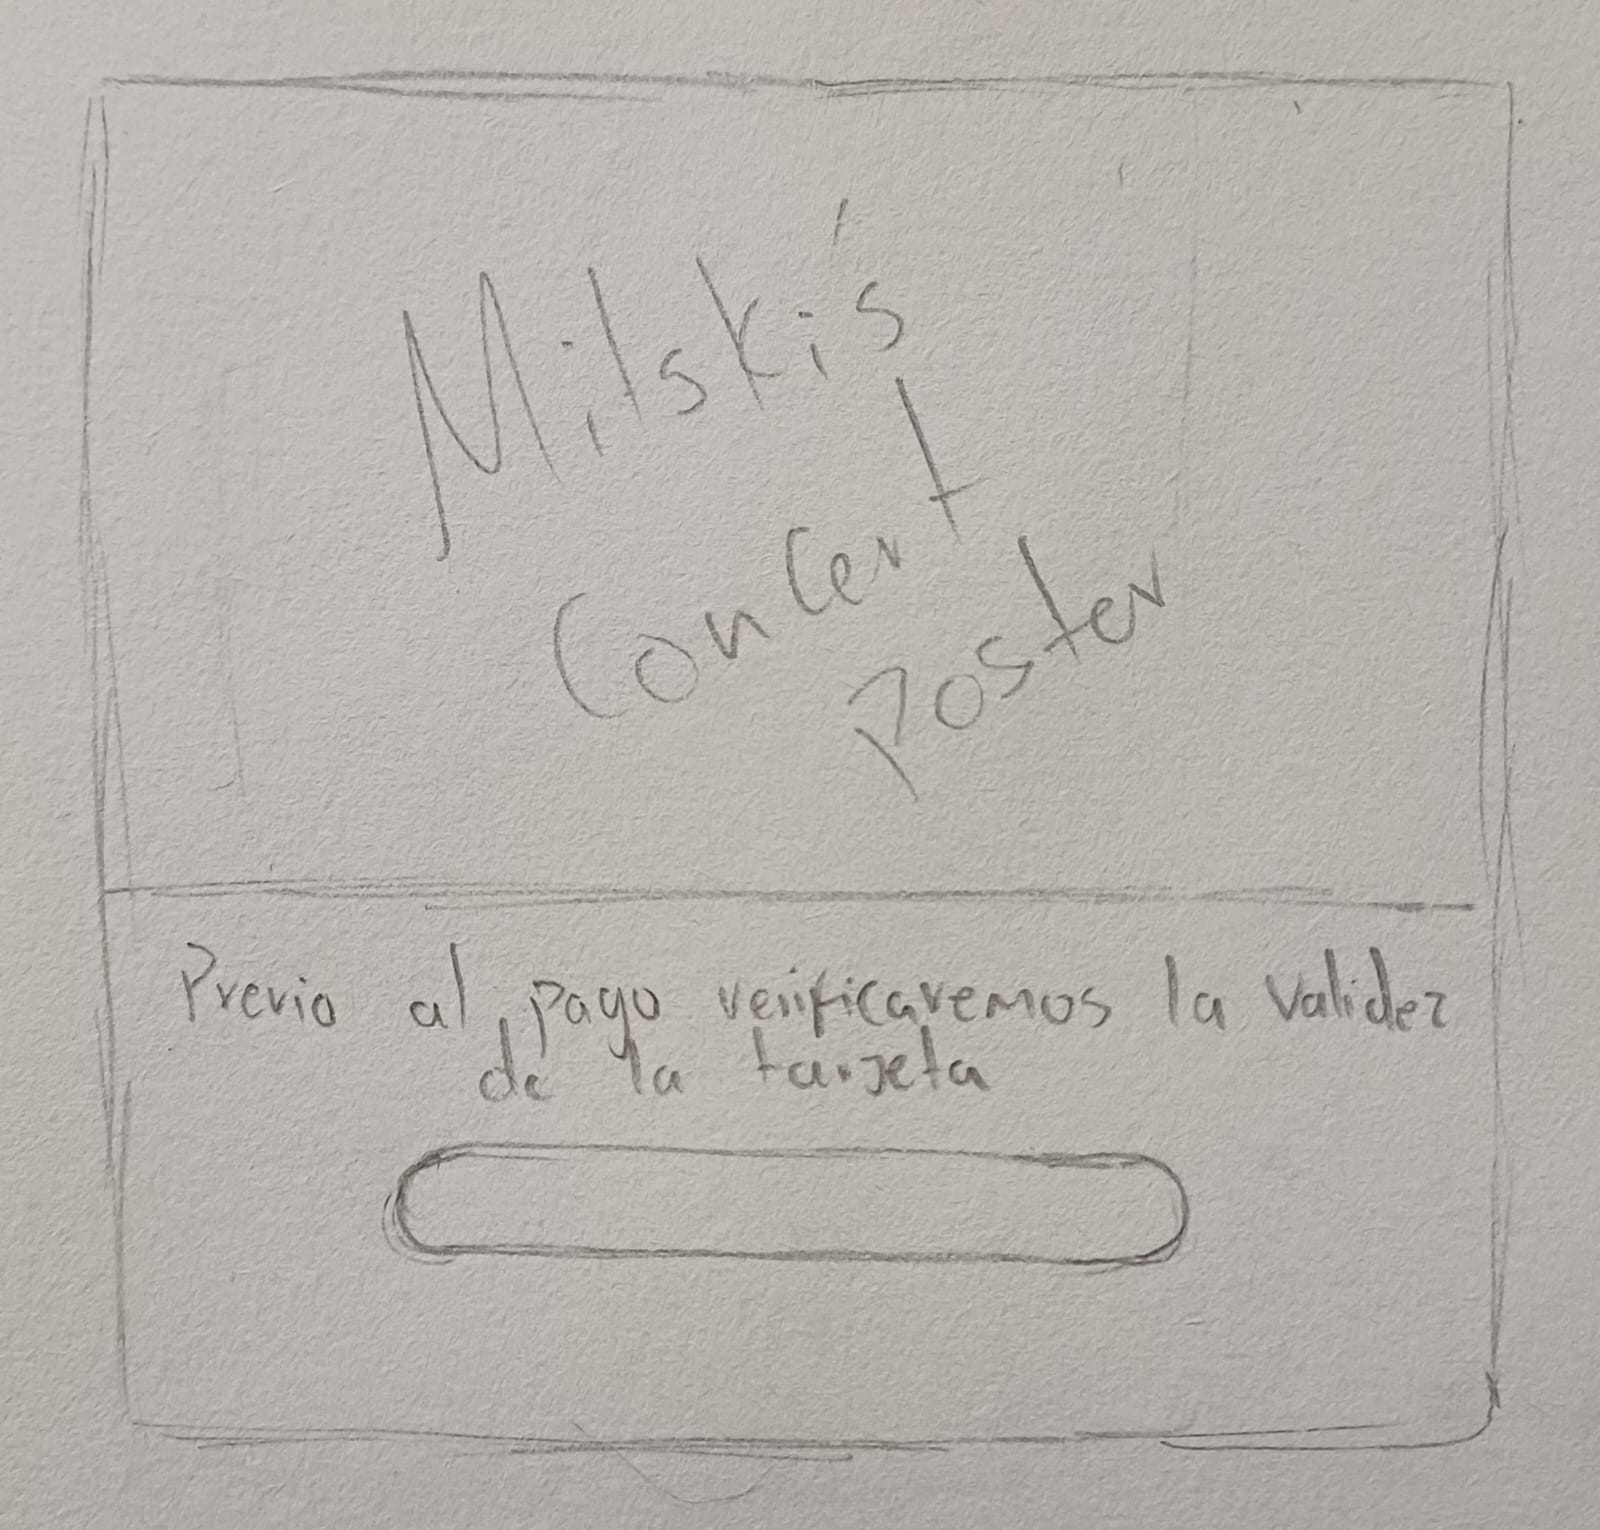 Milski's
Concert
Poster
Previo al pago verificaremos la validez
de la tarjeta